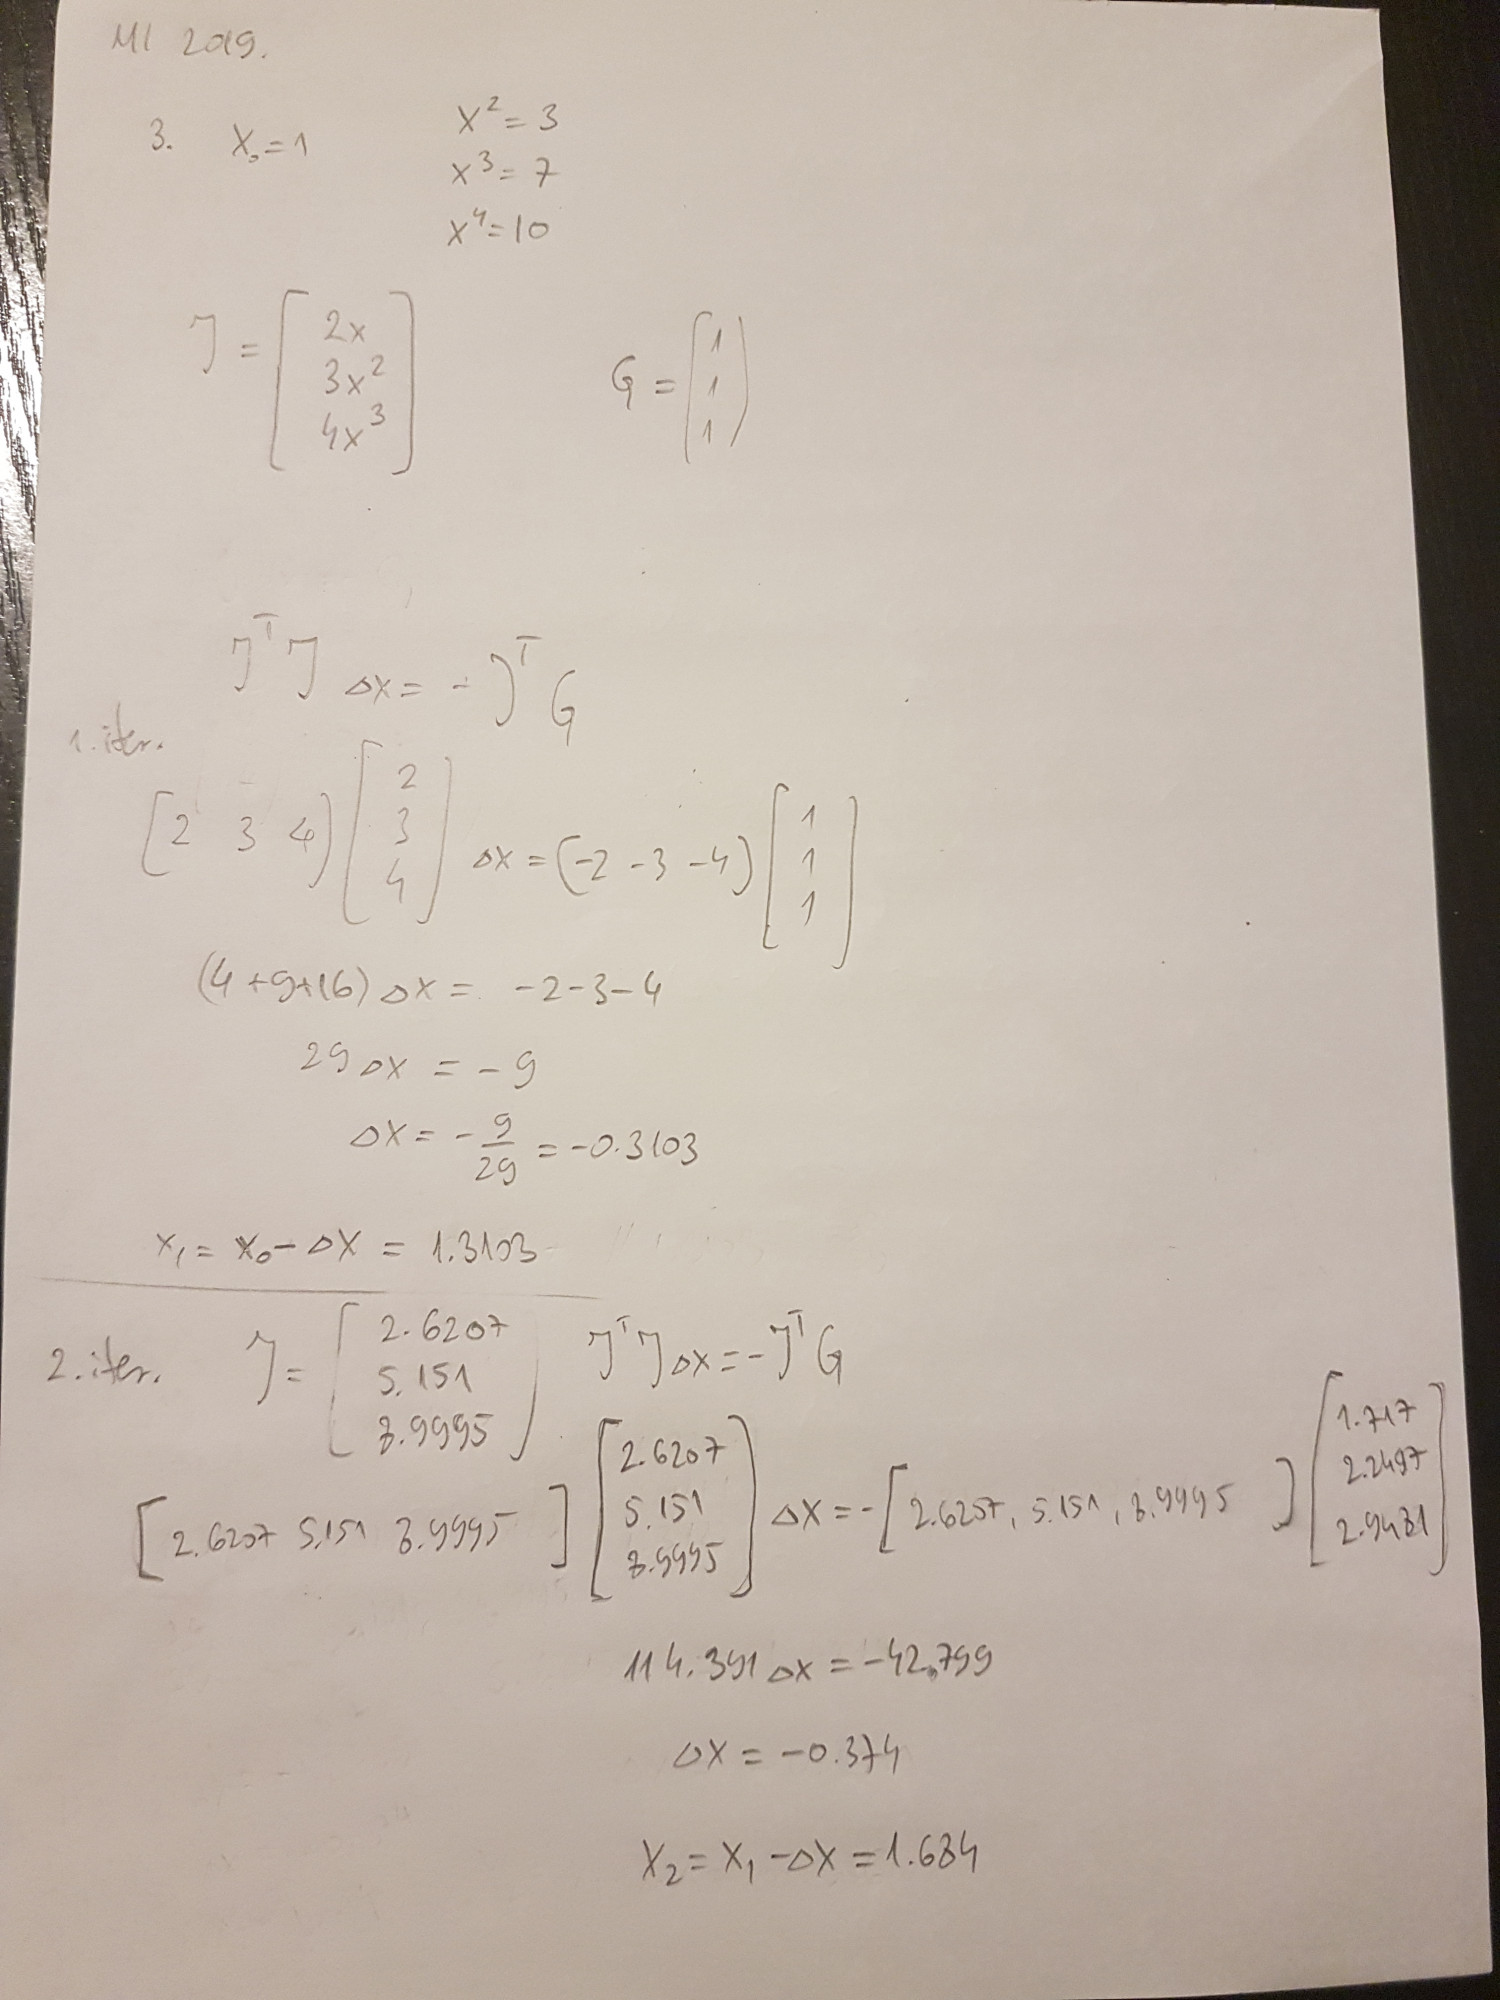 MI 2019.
3. X₀=1
x²=3
x³=7
x⁴=10
J = [2x 3x² 4x³]
G = (1 1 1)
JᵀJ Δx = -JᵀG
1. iter.
[2 3 4) [2 3 4] Δx = (-2 -3 -4) [1 1 1]
(4+9+16) Δx = -2-3-4
29 Δx = -9
Δx = -9/29 = -0.3103
x₁ = x₀ - Δx = 1.3103
2. iter. J = [2.6207 5.151 8.9995) JᵀJ Δx = -JᵀG
[2.6207 5.151 8.9995] [2.6207 5.151 8.9995] Δx = -[2.6207, 5.151, 8.9995] [1.717 2.2497 2.9481]
114.391 Δx = -42.799
Δx = -0.374
X₂ = X₁ - Δx = 1.684